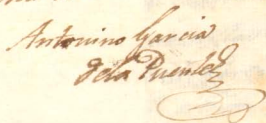 Antonino Garcia
dela Puente